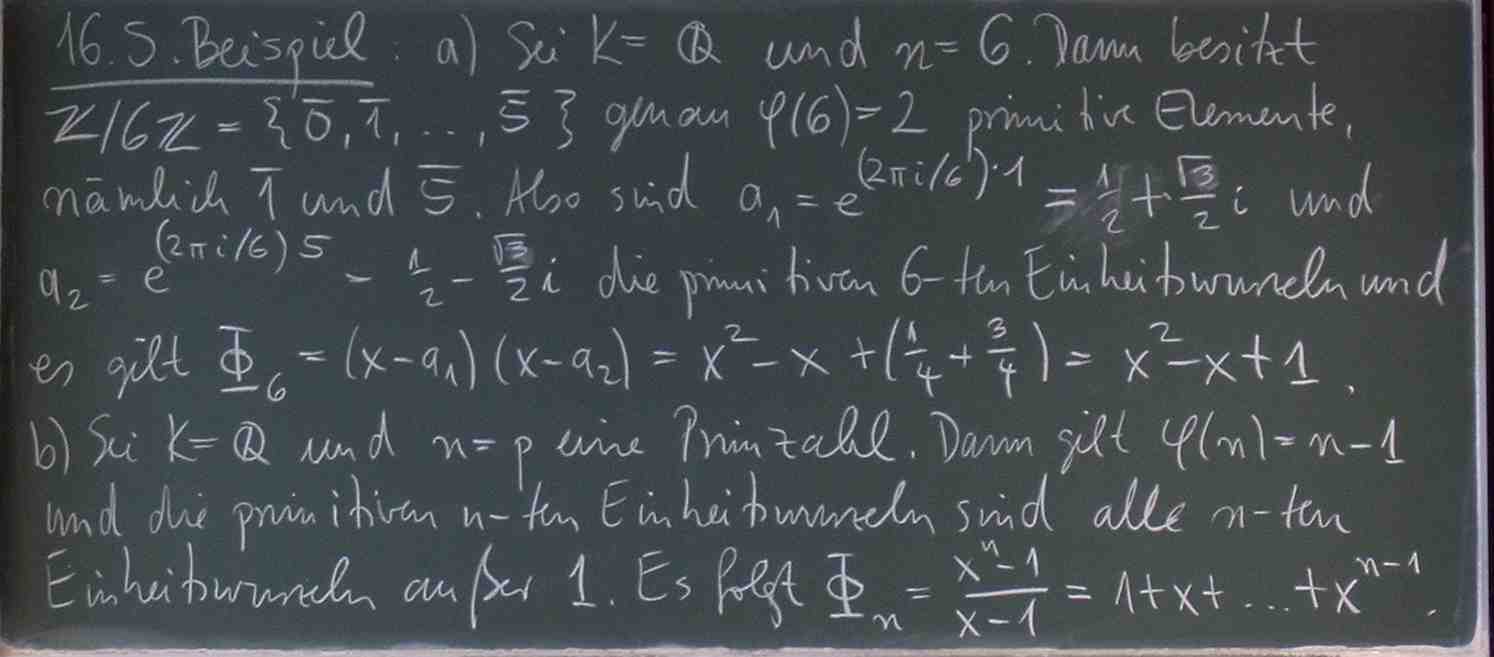 16.5. Beispiel: a) Sei K = ℚ und n = 6. Dann besitzt
ℤ/6ℤ = {0̄, 1̄, ..., 5̄} genau φ(6) = 2 primitive Elemente,
nämlich 1̄ und 5̄. Also sind a₁ = e^{(2πi/6)·1} = 1/2 + √3/2 i und
a₂ = e^{(2πi/6)5} - 1/2 - √3/2 i die primitiven 6-ten Einheitswurzeln und
es gilt Φ₆ = (x-a₁)(x-a₂) = x² - x + (1/4 + 3/4) = x² - x + 1.
b) Sei K = ℚ und n = p eine Primzahl. Dann gilt φ(n) = n-1
und die primitiven n-ten Einheitswurzeln sind alle n-ten
Einheitswurzeln außer 1. Es folgt Φₙ = (xⁿ-1)/(x-1) = 1 + x + ... + x^{n-1}.